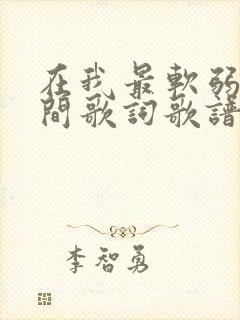 在我最軟弱
間歌詞歌譜
李智勇